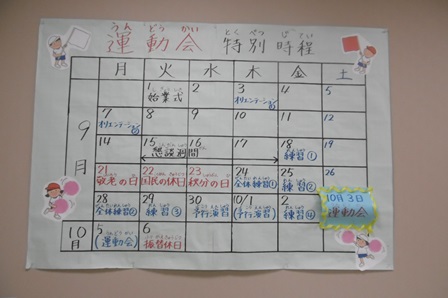 うんどうかい とくべつじてい
運動会 特別時程
月 火 水 木 金 土
9月
1 始業式 2 3 オリエンテーション① 4 5
7 オリエンテーション② 8 9 10 11 12
14 15 16 17 18 練習① 19
懇談週間
21 敬老の日 22 国民の休日 23 秋分の日 24 全体練習① 25 練習② 26
28 全体練習② 29 練習③ 30 予行演習 10/1 (予行演習) 2 練習④
10月3日
運動会
10月
5 (運動会) 6 振替休日